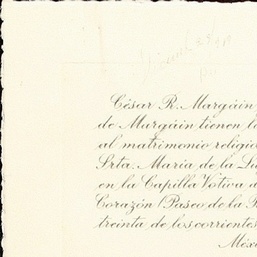 César R. Margáin
de Margáin tienen l
al matrimonio religio
Srta. María de la Lu
en la Capilla Votiva d
Corazón (Paseo de la R
treinta de los corrientes
Méxi